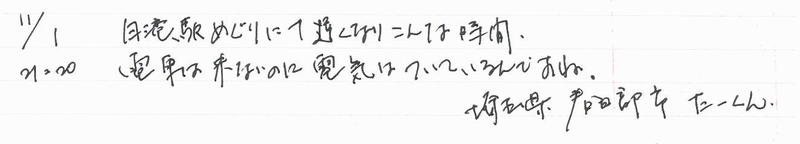 11/1 駅めぐりにて遅くなりこんな時間.
21:20 電車は来ないのに電気はついているんですね。
埼玉県 たーくん.